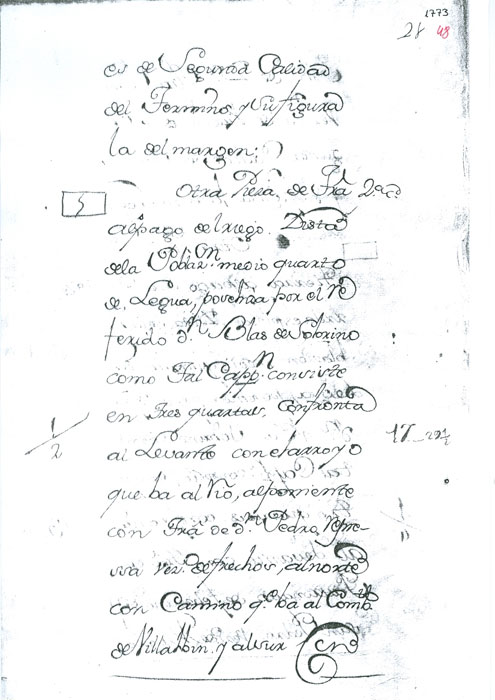 1773
21 48
es de Segunda Calidad
del Termino y su figura
la del margen.
5
Otra Pieza de Tra
al pago del riego. Dista
de la Poblaz.on medio quarto
de Legua, poseida por el Re
ferido D.n Blas de Solorino
como Tal Capp.n consiste
en Tres quartas, Confronta
1/2
17
al Levante con el arroyo
que ba al Rio, al poniente
con Tra de D.n Pedro
vez.o de frechos, al norte
con Camino q.e ba al Comb.to
de Villabin y al sur